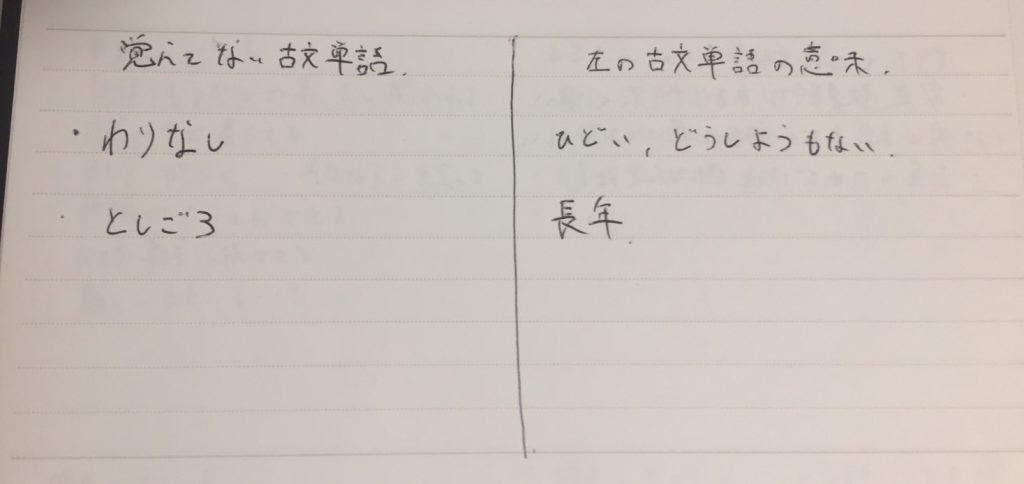 覚えてない古文単語.
左の古文単語の意味.
・わりなし
ひどい,どうしようもない.
・としごろ
長年.